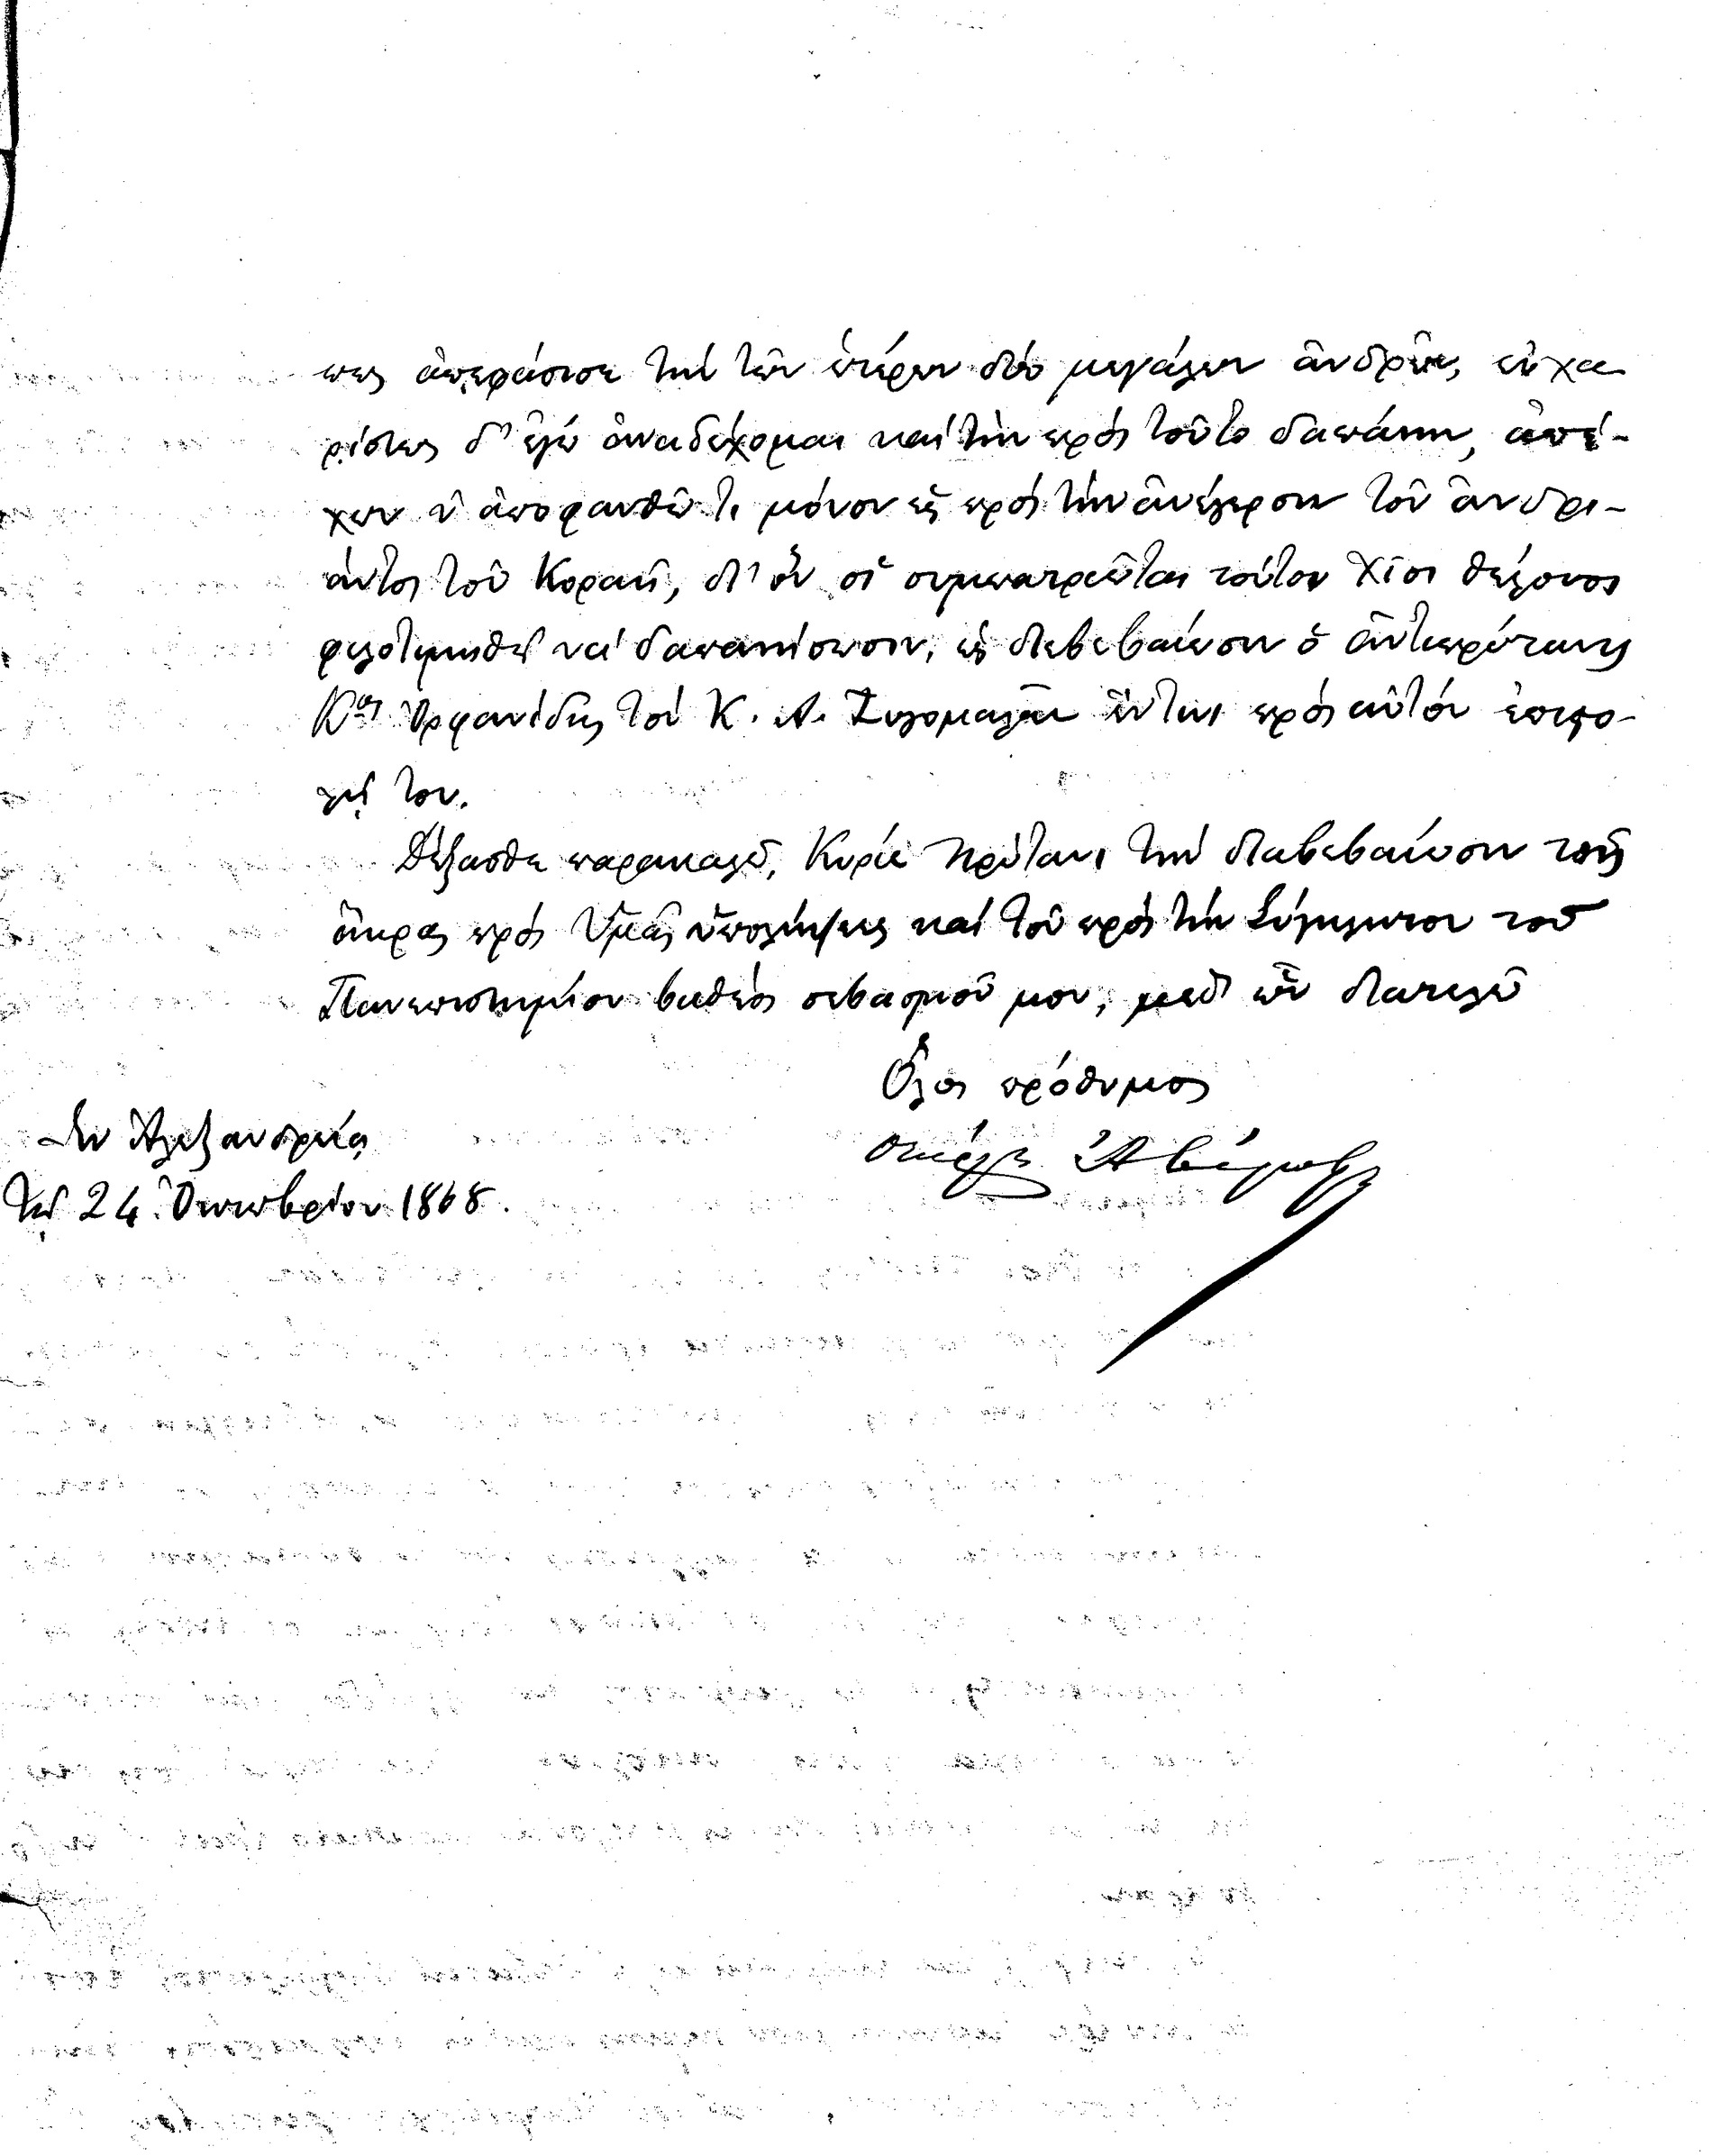 πως ἀπεφάσισε τὴν τῶν ἑτέρων δύο μεγάλων ἀνδρῶν, εὐχα-
ρίστως δ' ἐγὼ ἀναδέχομαι καὶ τὴν πρὸς τοῦτο δαπάνην, ἀπέ-
χων ν' ἀποφανθῶ τι μόνον ὡς πρὸς τὴν ἀνέγερσιν τοῦ ἀνδρι-
άντος τοῦ Κοραῆ, δι' ὃν οἱ συμπατριῶται τούτου Χῖοι θέλουσι
φιλοτιμηθῆ νὰ δαπανήσωσιν, ὡς διεβεβαίωσεν ὁ ἀντιπρύτανις
Κος Ὀρφανίδης τὸν Κ. Α. Συγομαλᾶν ἔν τινι πρὸς αὐτὸν ἐπιστο-
λῇ του.
Δέξασθε παρακαλῶ, Κύριε Πρύτανι τὴν διαβεβαίωσιν τῆς
ἄκρας πρὸς Ὑμᾶς ὑπολήψεως καὶ τοῦ πρὸς τὴν Σύγκλητον τοῦ
Πανεπιστημίου βαθέος σεβασμοῦ μου, μεθ' ὧν διατελῶ
Ὅλος πρόθυμος
Ἐν Ἀλεξανδρείᾳ
Ἀβέρωφ
τῇ 24 Ὀκτωβρίου 1868.